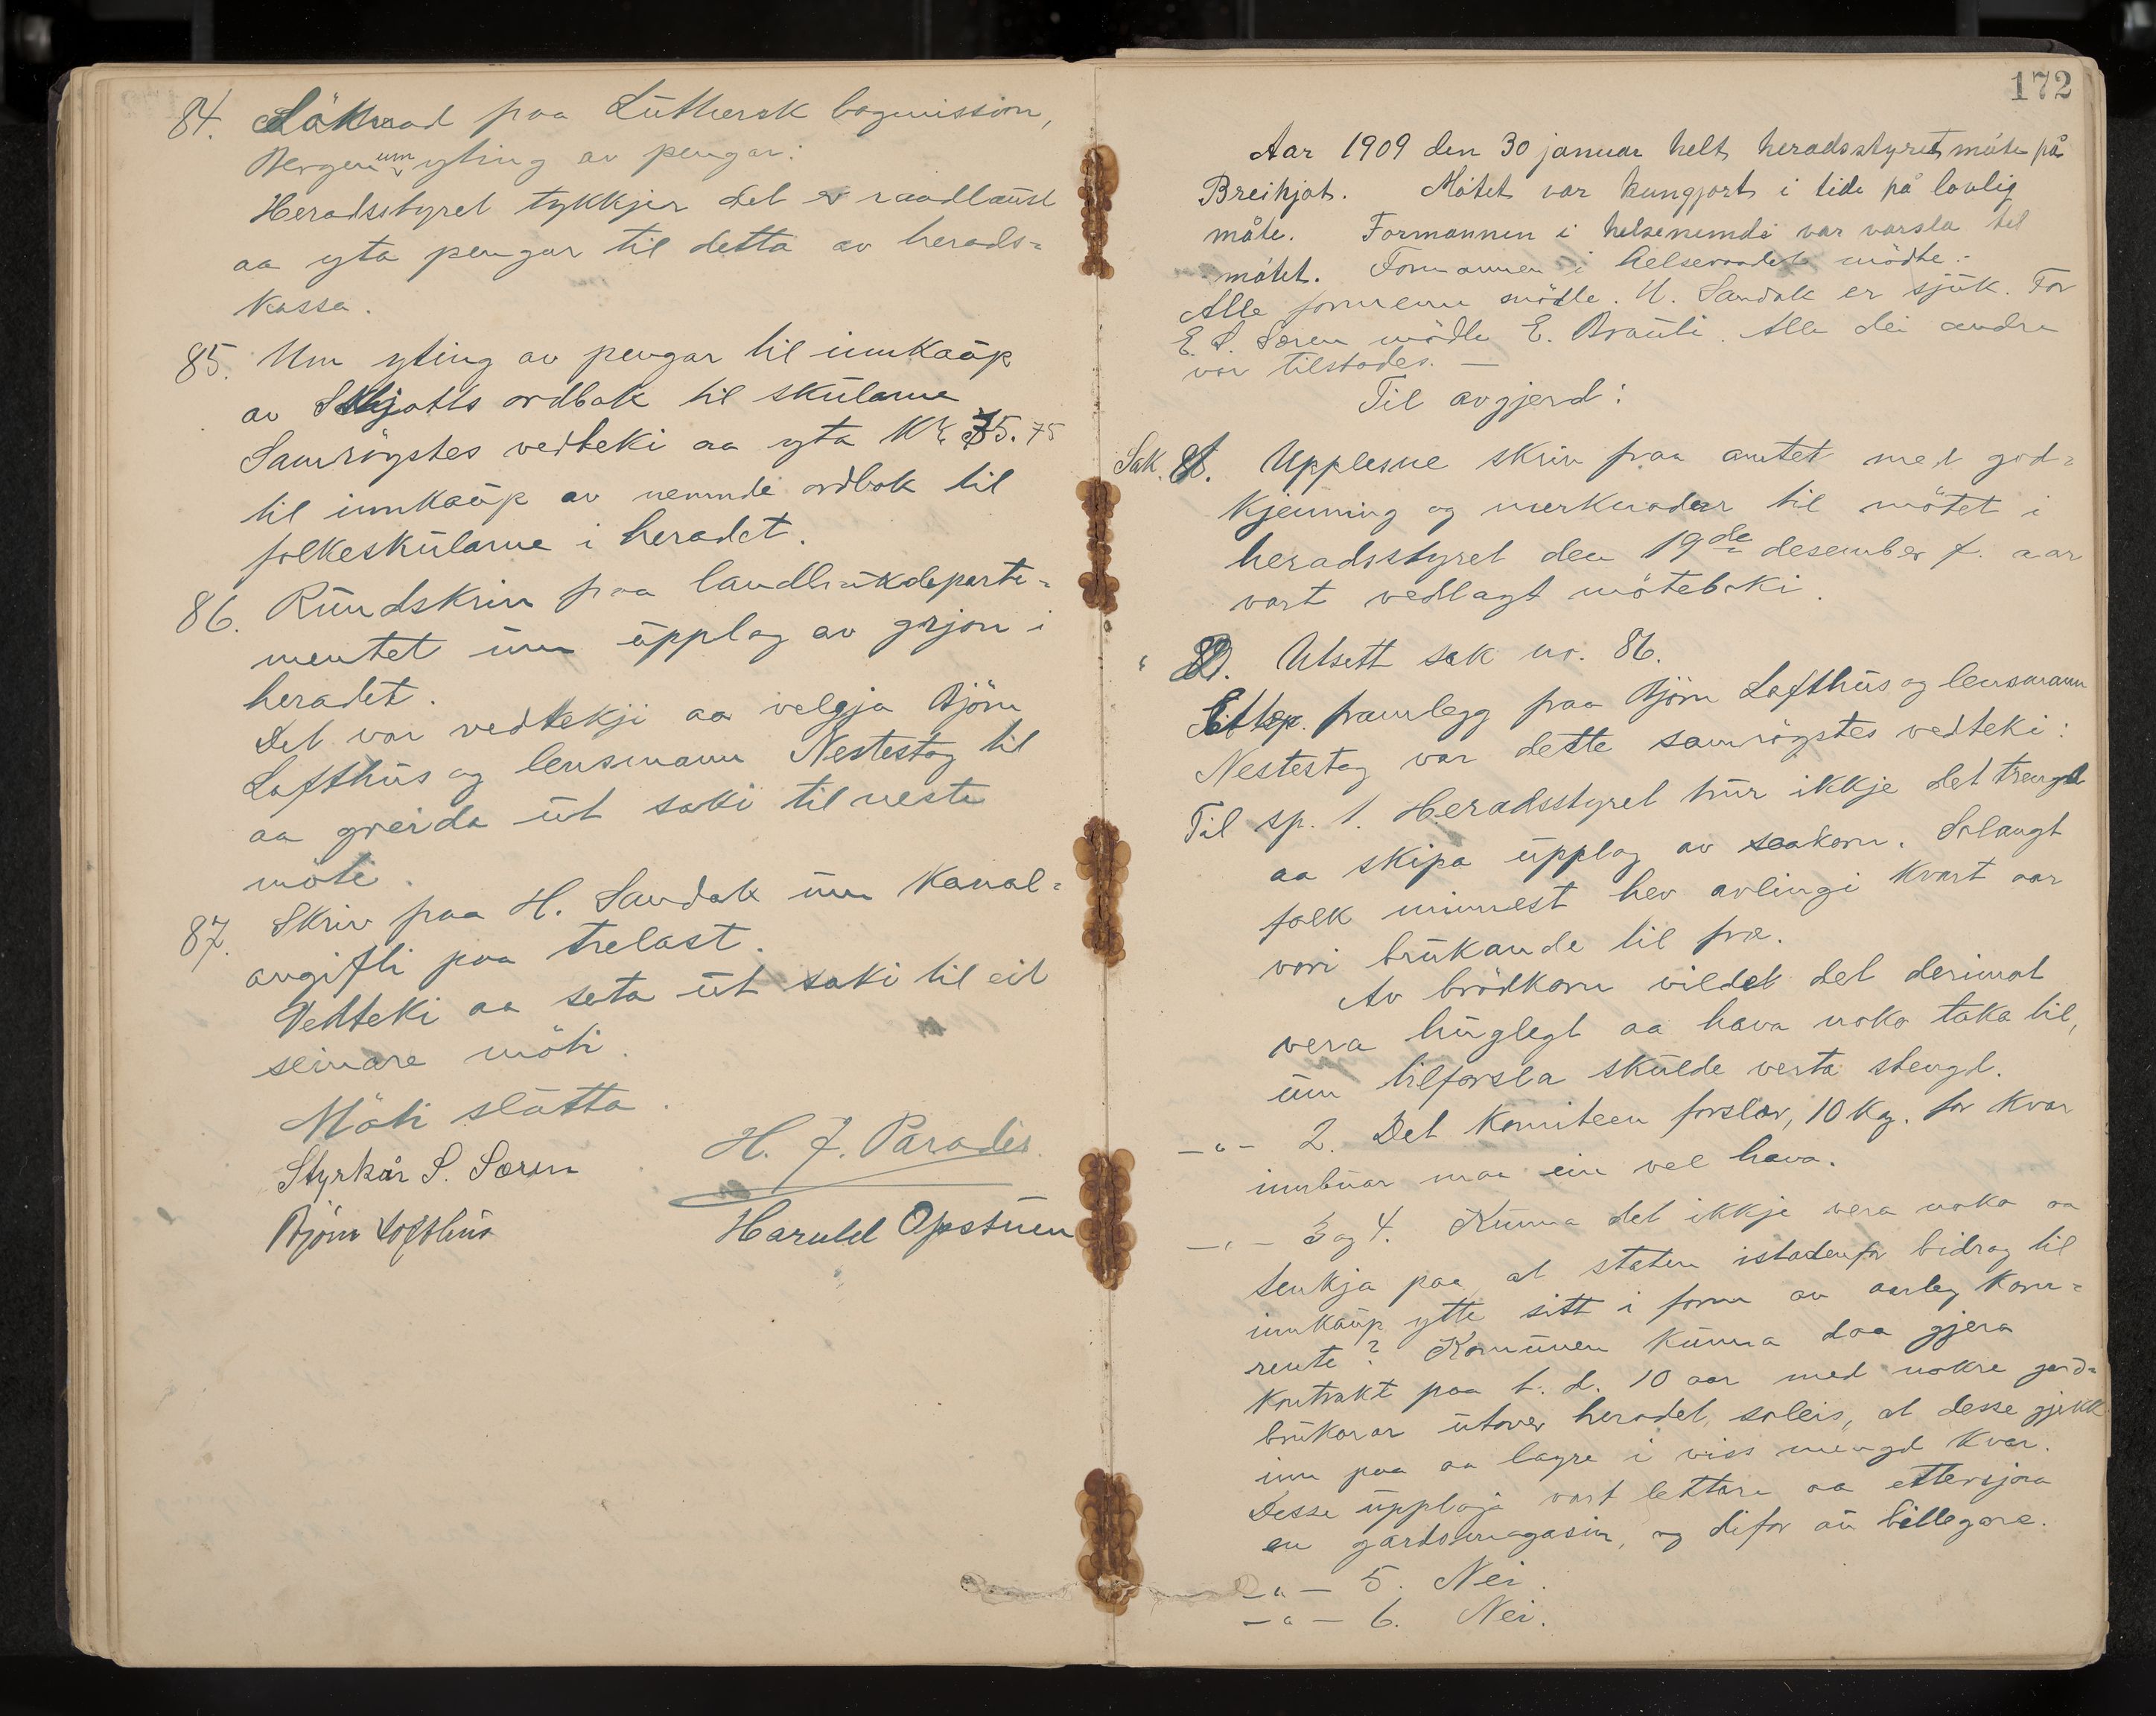 84. Söknad fraa Luthersk bogmission,
Bergen um yting av pengar:
Heradsstyret tykkjer det er raadlaust
aa yta pengar til detta av herads-
kassa.
85. Um yting av pengar til innkaup
av Skjøtts ordbok til skularne
Samrøystes vedteki aa yta Kr. 35.75
til innkaup av nemnde ordbok til
folkeskularne i heradet.
86. Rundskriv fraa landbrukdeparte-
mentet um upplag av grjon i
heradet.
Det var vedtekji aa velgja Bjørn
Lofthus og lensmann Nestestog til
aa greida ut saki til neste
møte.
87. Skriv fraa H. Sandok um Kanal-
avgifti paa trelast.
Vedteki aa seta ut saki til eit
seinare møti.
Møti slutta.
H. J. Parades
Styrkår S. Søren
Bjørn Lofthus
Harald Opstuen
172
Aar 1909 den 30 januar helt heradsstyret møte på
Breikjøt. Møtet var kungjort i tide på lovlig
måte. Formannen i helsenemdi var varsla til
møtet. Formannen i helseraadet mødte.
Alle formenn mødte. H. Sandok er sjuk. For
E. S. Søren mødte E. Brauti. Alle dei andre
var tilstades. —
Til avgjerd:
Sak. 81. Upplesne skriv fraa amtet med god-
kjenning og merknader til møtet i
heradsstyret den 19de desember f. aar
vart vedlagt møteboki.
" 82. Utsett sak nr. 86.
Etter framlegg fraa Bjørn Lofthus og lensmann
Nestestog var dette samrøystes vedteki:
Til sp. 1. Heradsstyret trur ikkje det trengst
aa skipa upplag av saakorn. Solangt
folk minnest hev avlingi kvart aar
vori brukande til frø.
Av brødkorn vilde det derimot
vera huglegt aa hava noko taka til,
um tilførsla skulde verta stengd.
—"— 2. Det komiteen forslær, 10 kg. for kvar
innbuar maa ein vel hava.
—"— 3 og 4. Kunna det ikkje vera noko aa
tenkja paa at staten istadenfor bidrag til
innkaup ytte sitt i form av aarleg korn-
rente? Komunen kunna daa gjera
kontrakt paa t. d. 10 aar med nokre gard-
brukarar utover heradet, soleis, at desse gjekk
inn paa aa lagre i viss mengd kvar.
Desse upplaga vart lettare aa ettersjaa
en gardsmagasin, og difor au billegare.
—"— 5. Nei.
—"— 6. Nei.